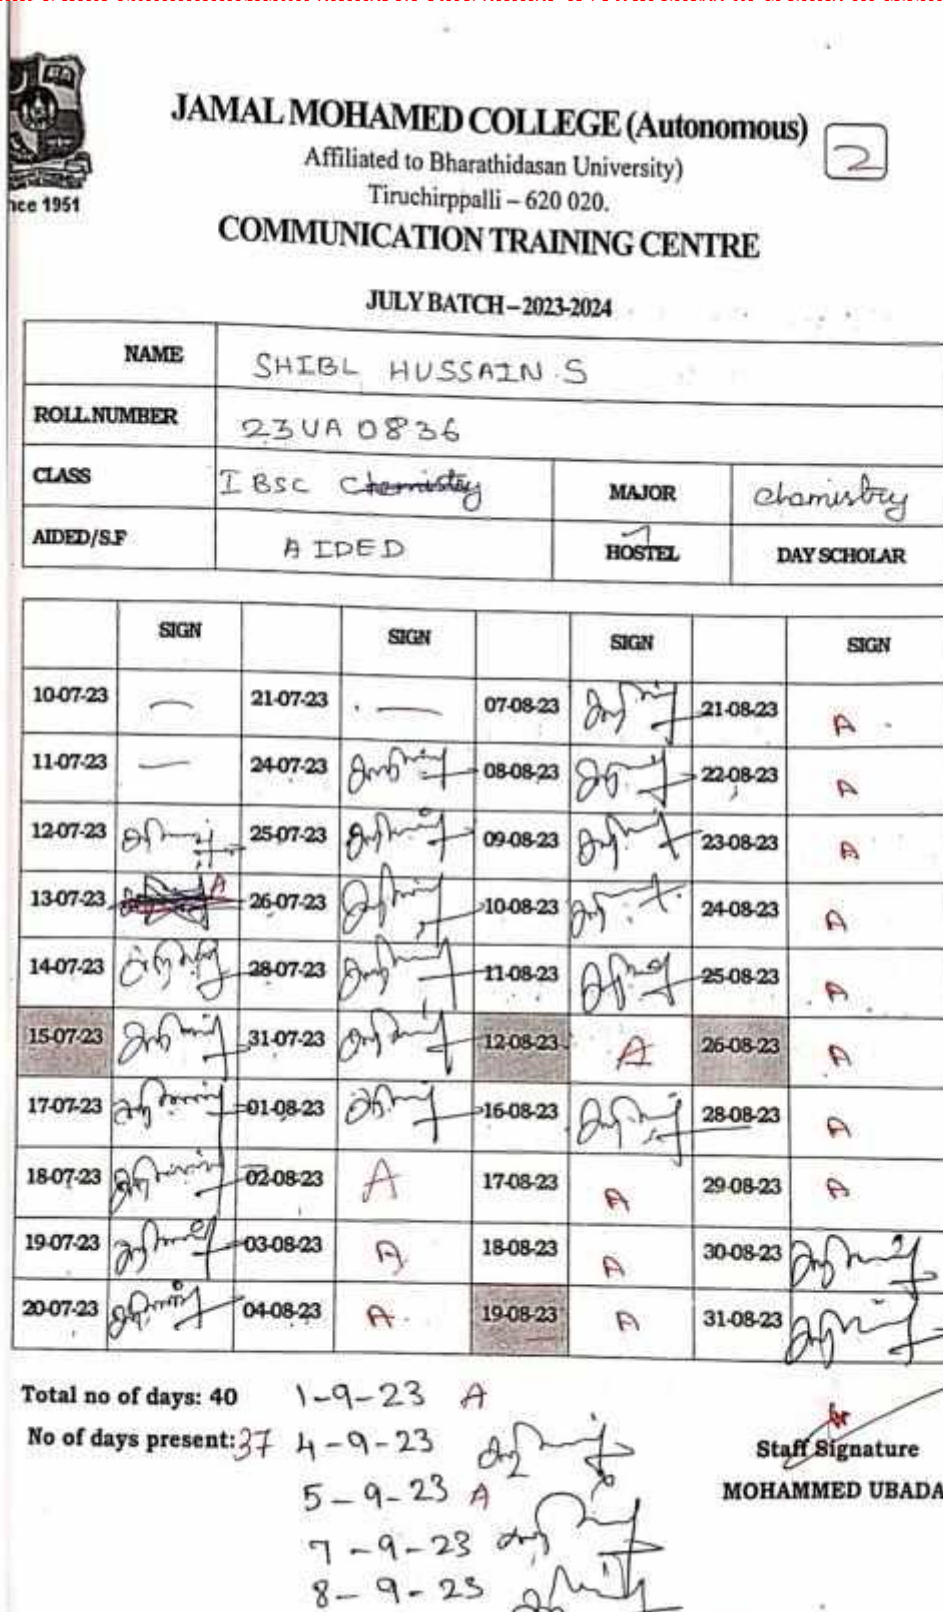 nce 1951
JAMAL MOHAMED COLLEGE (Autonomous)
2
Affiliated to Bharathidasan University)
Tiruchirppalli – 620 020.
COMMUNICATION TRAINING CENTRE
JULY BATCH – 2023-2024
NAME SHIBL HUSSAIN.S
ROLL.NUMBER 23UA0836
CLASS I BSC Chemistry MAJOR Chemistry
AIDED/S.F AIDED HOSTEL DAY SCHOLAR
SIGN SIGN SIGN SIGN
10-07-23 — 21-07-23 — 07-08-23 21-08-23 A
11-07-23 — 24-07-23 08-08-23 22-08-23 A
12-07-23 25-07-23 09-08-23 23-08-23 A
13-07-23 A 26-07-23 10-08-23 24-08-23 A
14-07-23 28-07-23 11-08-23 25-08-23 A
15-07-23 31-07-23 12-08-23 A 26-08-23 A
17-07-23 01-08-23 16-08-23 28-08-23 A
18-07-23 02-08-23 A 17-08-23 A 29-08-23 A
19-07-23 03-08-23 A 18-08-23 A 30-08-23
20-07-23 04-08-23 A 19-08-23 A 31-08-23
Total no of days: 40 1-9-23 A
No of days present: 37 4-9-23
Staff Signature
5-9-23 A
MOHAMMED UBADA
7-9-23
8-9-23